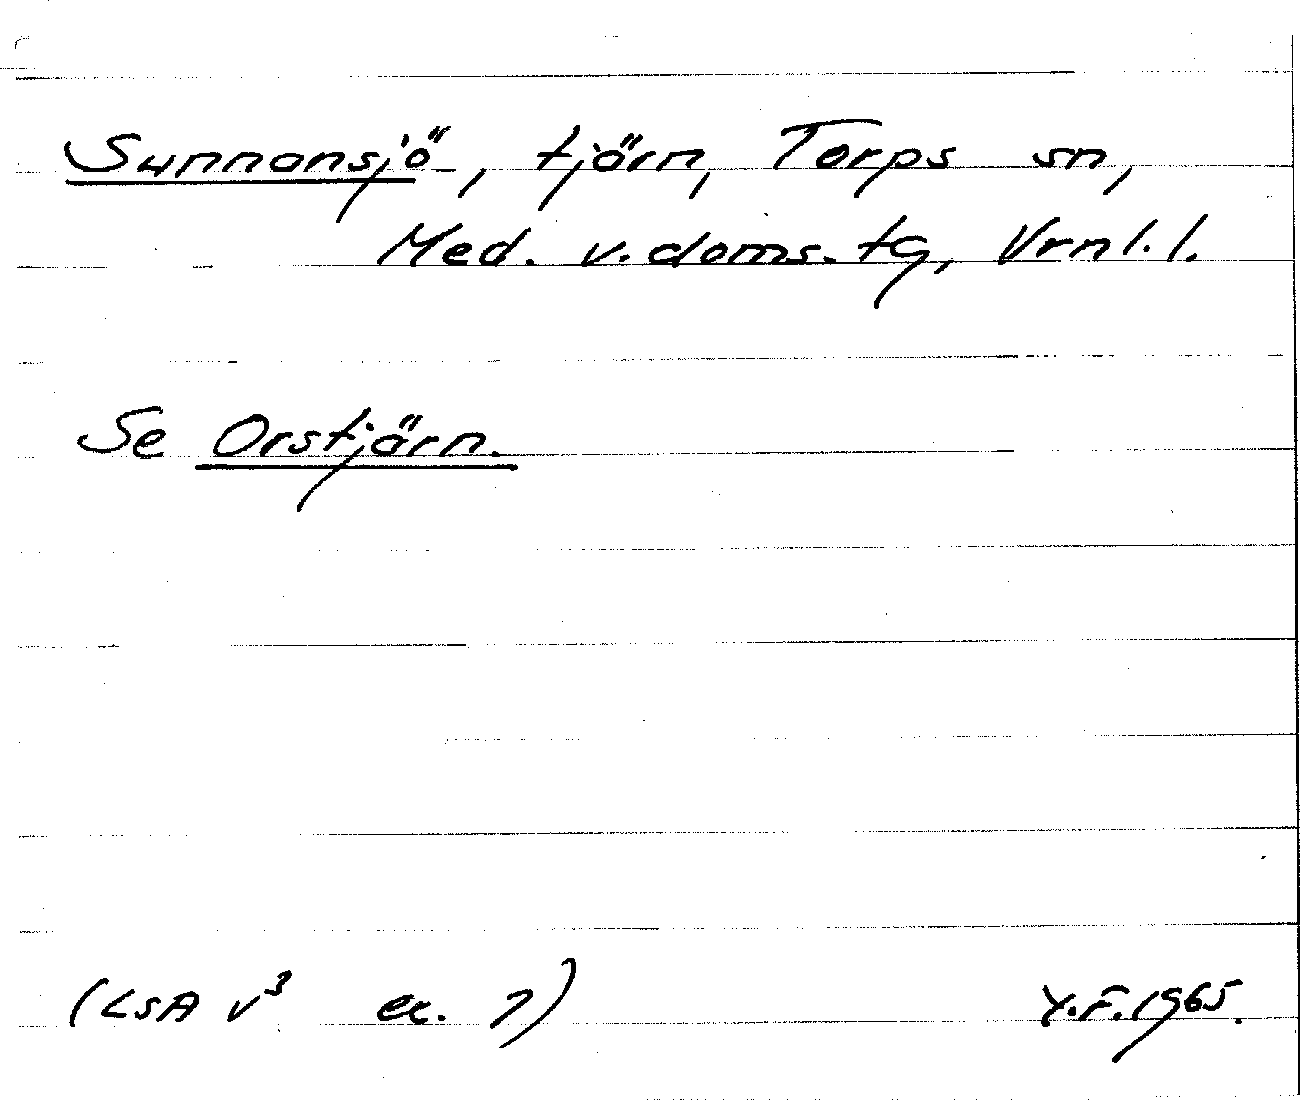 Sunnansjö, tjärn, Torps sn,
Med. v. doms. tg, Vrnl. l.
Se Orstjärn.
(LSA v³ ec. 7) Y.F. 1965.